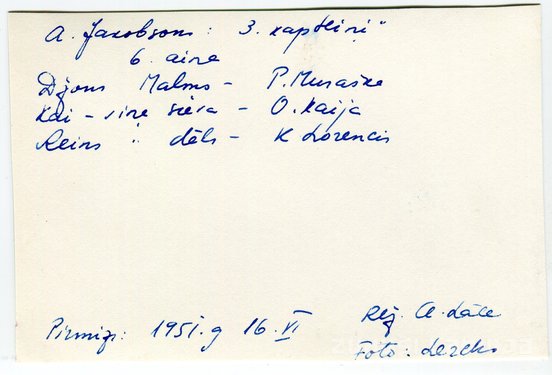 A. Jakobsons: "3. kapteiņi"
6. aina
Džons Malms - P. Muraška
Kai - viņa sieva - O. Kaija
Reins " dēls - K Lorencis
Pirmizr: 1951. g 16. VI
Rež. A. Lāce
Foto: